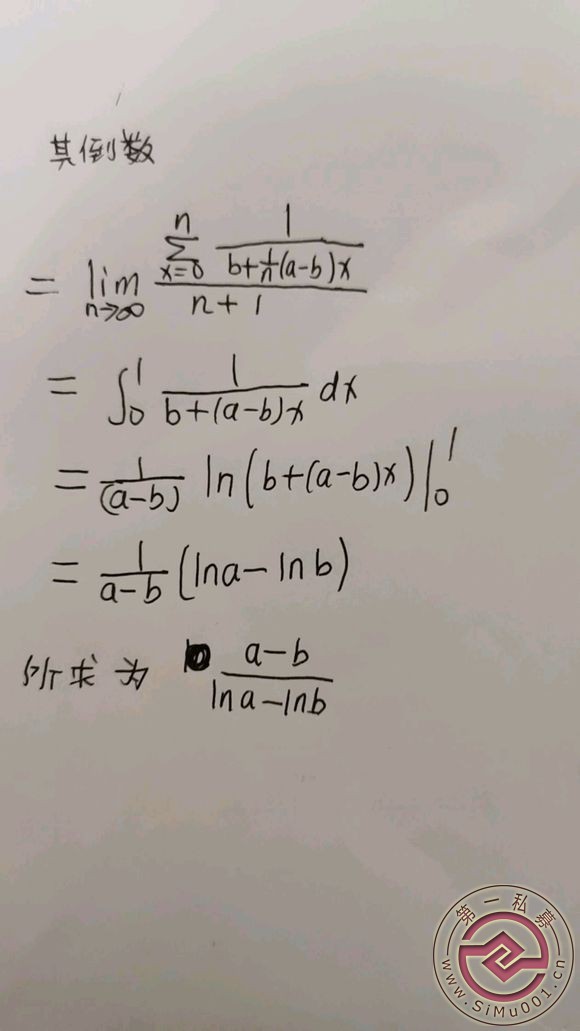 其倒数
= lim n→∞ (∑ x=0 n 1/(b+1/n(a-b)x))/(n+1)
= ∫₀¹ 1/(b+(a-b)x) dx
= 1/(a-b) ln(b+(a-b)x)|₀¹
= 1/a-b (lna-lnb)
所求为 a-b/lna-lnb
第一私募
www.SiMu001.cn